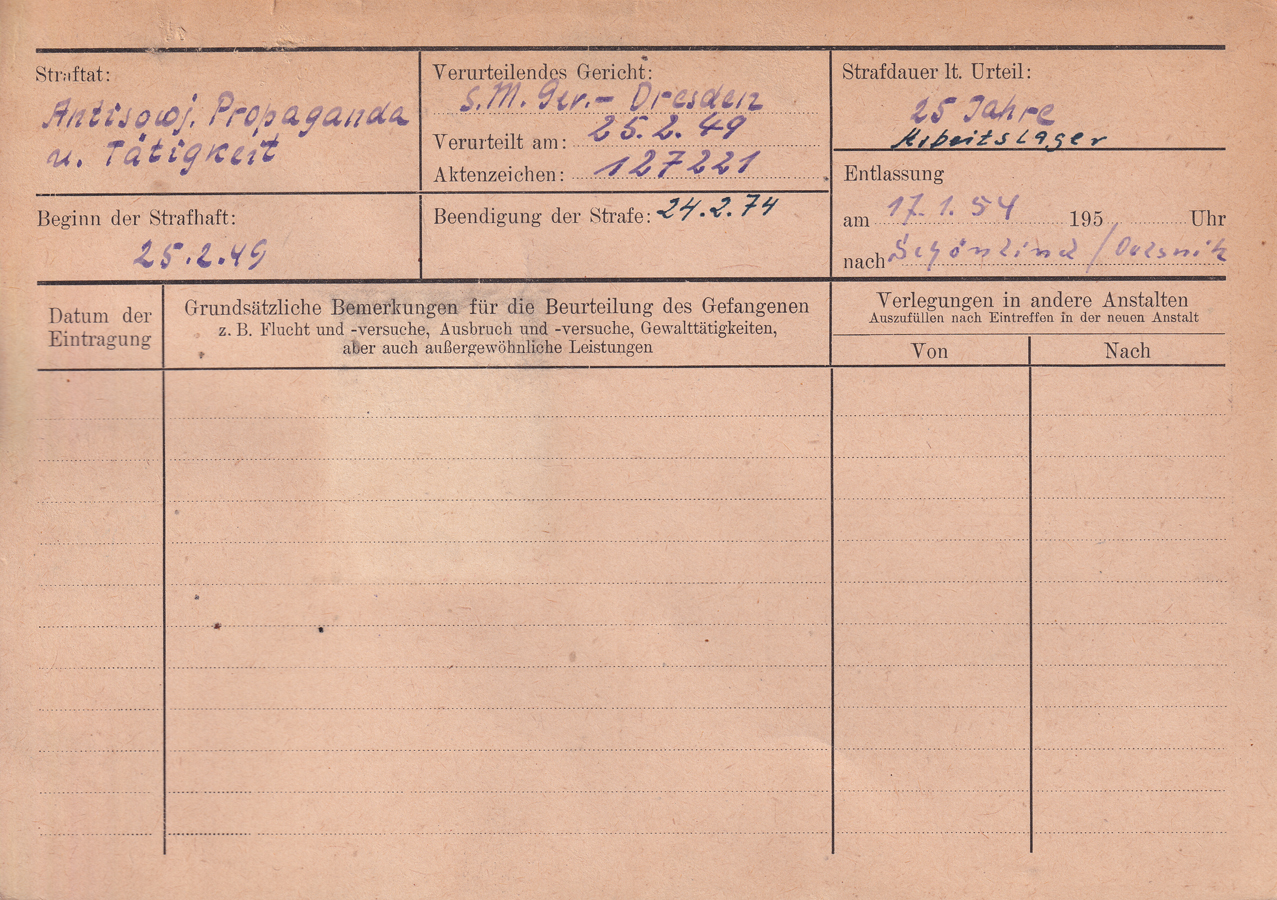 Straftat:
Antisowj. Propaganda
u. Tätigkeit
Verurteilendes Gericht:
S.M. Ger.- Dresden
Verurteilt am: 25.2.49
Aktenzeichen: 127221
Strafdauer lt. Urteil:
25 Jahre
Arbeitslager
Beginn der Strafhaft:
25.2.49
Beendigung der Strafe: 24.2.74
Entlassung
am 17.1.54 195 Uhr
nach Schönlind / Oelsnitz
Datum der
Eintragung
Grundsätzliche Bemerkungen für die Beurteilung des Gefangenen
z. B. Flucht und -versuche, Ausbruch und -versuche, Gewalttätigkeiten,
aber auch außergewöhnliche Leistungen
Verlegungen in andere Anstalten
Auszufüllen nach Eintreffen in der neuen Anstalt
Von
Nach